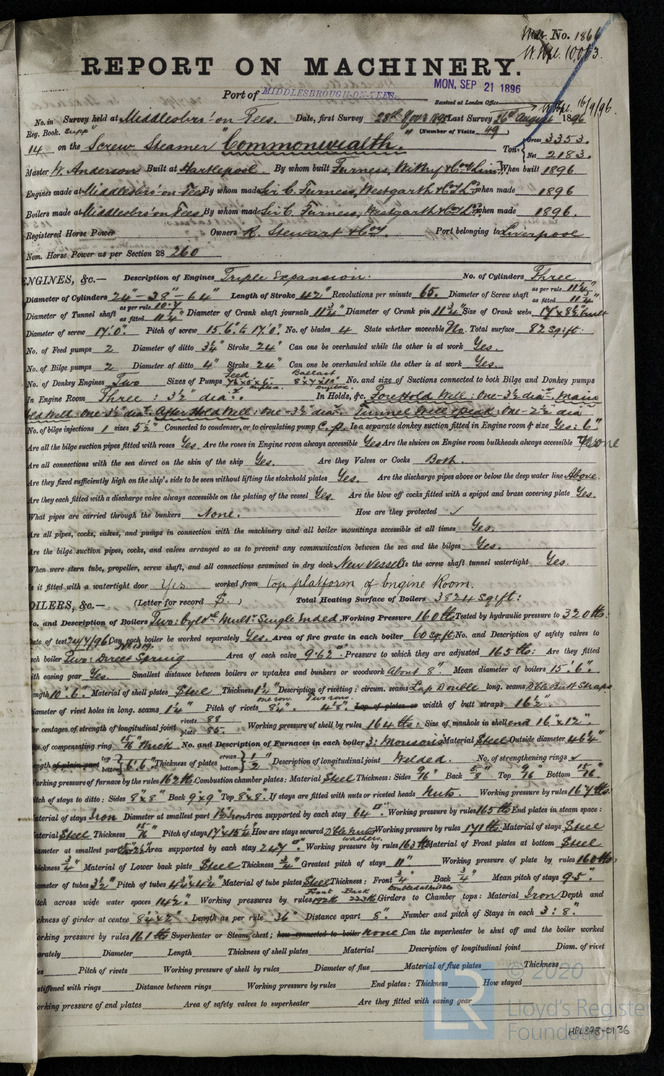 No. 1866
REPORT ON MACHINERY.
Port of MIDDLESBROUGH-ON-TEES.
MON. SEP 21 1896
Received at London Office
16/9/96
No. in Survey held at Middlesbro' on Tees. Date, first Survey 28th Last Survey 26th August 1896
Reg. Book. Supp
(Number of Visits 49)
14 on the Screw Steamer "Commonwealth. Tons Gross 3353. Net 2183.
Master W. Anderson Built at Hartlepool. By whom built Furness, Withy & Co. Lim. When built 1896
Engines made at Middlesbro' on Tees By whom made Sir C. Furness, Westgarth & Co. Ld when made 1896
Boilers made at Middlesbro' on Tees By whom made Sir C. Furness, Westgarth & Co. Ld when made 1896.
Registered Horse Power Owners R. Stewart & Co. Port belonging to Liverpool
Nom. Horse Power as per Section 28 260
ENGINES, &c.— Description of Engines Triple Expansion. No. of Cylinders Three
Diameter of Cylinders 24"-38"-64" Length of Stroke 42" Revolutions per minute 65. Diameter of Screw shaft as per rule 11¼" as fitted 11¾"
Diameter of Tunnel shaft as per rule 10.7 as fitted 11¼" Diameter of Crank shaft journals 11¾" Diameter of Crank pin 11¾" Size of Crank webs 17 x 8⅝" built
Diameter of screw 17'.0" Pitch of screw 15.6" to 17'.0" No. of blades 4 State whether moveable No. Total surface 82 sq ft.
No. of Feed pumps 2 Diameter of ditto 3½" Stroke 24" Can one be overhauled while the other is at work Yes.
No. of Bilge pumps 2 Diameter of ditto 4" Stroke 24" Can one be overhauled while the other is at work Yes.
No. of Donkey Engines Two Sizes of Pumps Feed Ballast No. and size of Suctions connected to both Bilge and Donkey pumps
In Engine Room Three: 3½" dia: In Holds, &c. Fore Hold Well: One-3½ dia: Main
Hold Well: One-3½" dia: After Hold Well: One-3½" dia: Tunnel Well One-2½" dia
No. of bilge injections 1 sizes 5½" Connected to condenser, or to circulating pump C.p. Is a separate donkey suction fitted in Engine room & size Yes: 6"
Are all the bilge suction pipes fitted with roses Yes. Are the roses in Engine room always accessible Yes Are the sluices on Engine room bulkheads always accessible None
Are all connections with the sea direct on the skin of the ship Yes. Are they Valves or Cocks Both.
Are they fixed sufficiently high on the ship's side to be seen without lifting the stokehold plates Yes. Are the discharge pipes above or below the deep water line Above.
Are they each fitted with a discharge valve always accessible on the plating of the vessel Yes. Are the blow off cocks fitted with a spigot and brass covering plate Yes.
What pipes are carried through the bunkers None. How are they protected ✓
Are all pipes, cocks, valves, and pumps in connection with the machinery and all boiler mountings accessible at all times Yes.
Are the bilge suction pipes, cocks, and valves arranged so as to prevent any communication between the sea and the bilges Yes.
When were stern tube, propeller, screw shaft, and all connections examined in dry dock New Vessel Is the screw shaft tunnel watertight Yes.
Is it fitted with a watertight door Yes worked from Top platform of Engine Room.
BOILERS, &c.— (Letter for record S.) Total Heating Surface of Boilers 3824 sq ft:
No. and Description of Boilers Two: Cyl. Mult. Single Ended. Working Pressure 160 lbs Tested by hydraulic pressure to 320 lbs.
Date of test 24/7/96 Can each boiler be worked separately Yes. Area of fire grate in each boiler 60 sq ft. No. and Description of safety valves to
each boiler Two: Direct Spring Area of each valve 9.62" Pressure to which they are adjusted 165 lbs: Are they fitted
with easing gear Yes. Smallest distance between boilers or uptakes and bunkers or woodwork About 8". Mean diameter of boilers 15'.6".
Length 10'.6". Material of shell plates Steel Thickness Description of riveting: circum. seams Lap Double long. seams D'ble Butt Straps
Diameter of rivet holes in long. seams 1¼" Pitch of rivets 8¼". Lap of plates or width of butt straps 16½"
Per centages of strength of longitudinal joint rivets 88 plate 85. Working pressure of shell by rules 164 lbs: Size of manhole in shell end 16"x12".
Size of compensating ring thick No. and Description of Furnaces in each boiler 3: Morison's Material Steel Outside diameter 46¼"
Length of plain part 6'.6" Thickness of plates crown bottom ½" Description of longitudinal joint Welded. No. of strengthening rings ✓
Working pressure of furnace by the rules 162 lbs Combustion chamber plates: Material Steel Thickness: Sides 9/16" Back 5/8" Top 9/16 Bottom 15/16"
Pitch of stays to ditto: Sides 8"x8" Back 9x9 Top 8x8. If stays are fitted with nuts or riveted heads Nuts. Working pressure by rules 167 lbs.
Material of stays Iron Diameter at smallest part Area supported by each stay 64". Working pressure by rules 165 lbs End plates in steam space:
Material Steel Thickness Pitch of stays How are stays secured D'ble nuts washers. Working pressure by rules 171 lbs: Material of stays Steel
Diameter at smallest part Area supported by each stay 247". Working pressure by rules 163 lbs Material of Front plates at bottom Steel
Thickness ¾" Material of Lower back plate Steel Thickness ¾" Greatest pitch of stays 11" Working pressure of plate by rules 160 lbs:
Diameter of tubes 3½" Pitch of tubes Material of tube plates Steel Thickness: Front ¾" Back ¾" Mean pitch of stays 9.5".
Pitch across wide water spaces 14½". Working pressures by rules Front Back Girders to Chamber tops: Material Iron Depth and
thickness of girder at centre 8¼"x2" Length as per rule 36" Distance apart 8". Number and pitch of Stays in each 3: 8".
Working pressure by rules 161 lbs Superheater or Steam chest; how connected to boiler None. Can the superheater be shut off and the boiler worked
separately Diameter Length Thickness of shell plates Material Description of longitudinal joint Diam. of rivet
holes Pitch of rivets Working pressure of shell by rules Diameter of flue Material of flue plates Thickness
If stiffened with rings Distance between rings Working pressure by rules End plates: Thickness How stayed
Working pressure of end plates Area of safety valves to superheater Are they fitted with easing gear
© 2020
LR
Lloyd's Register
Foundation
HPL378-0136